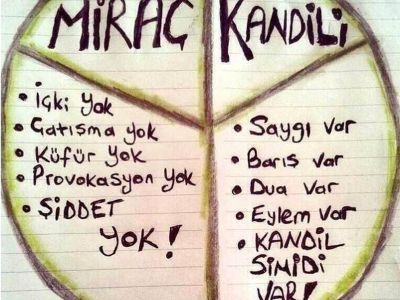 MİRAÇ KANDİLİ
• İçki yok
• Çatışma yok
• Küfür yok
• Provokasyon yok
• ŞİDDET
YOK!
• Saygı var
• Barış var
• Dua var
• Eylem var
• KANDİL
SİMİDİ
VAR!